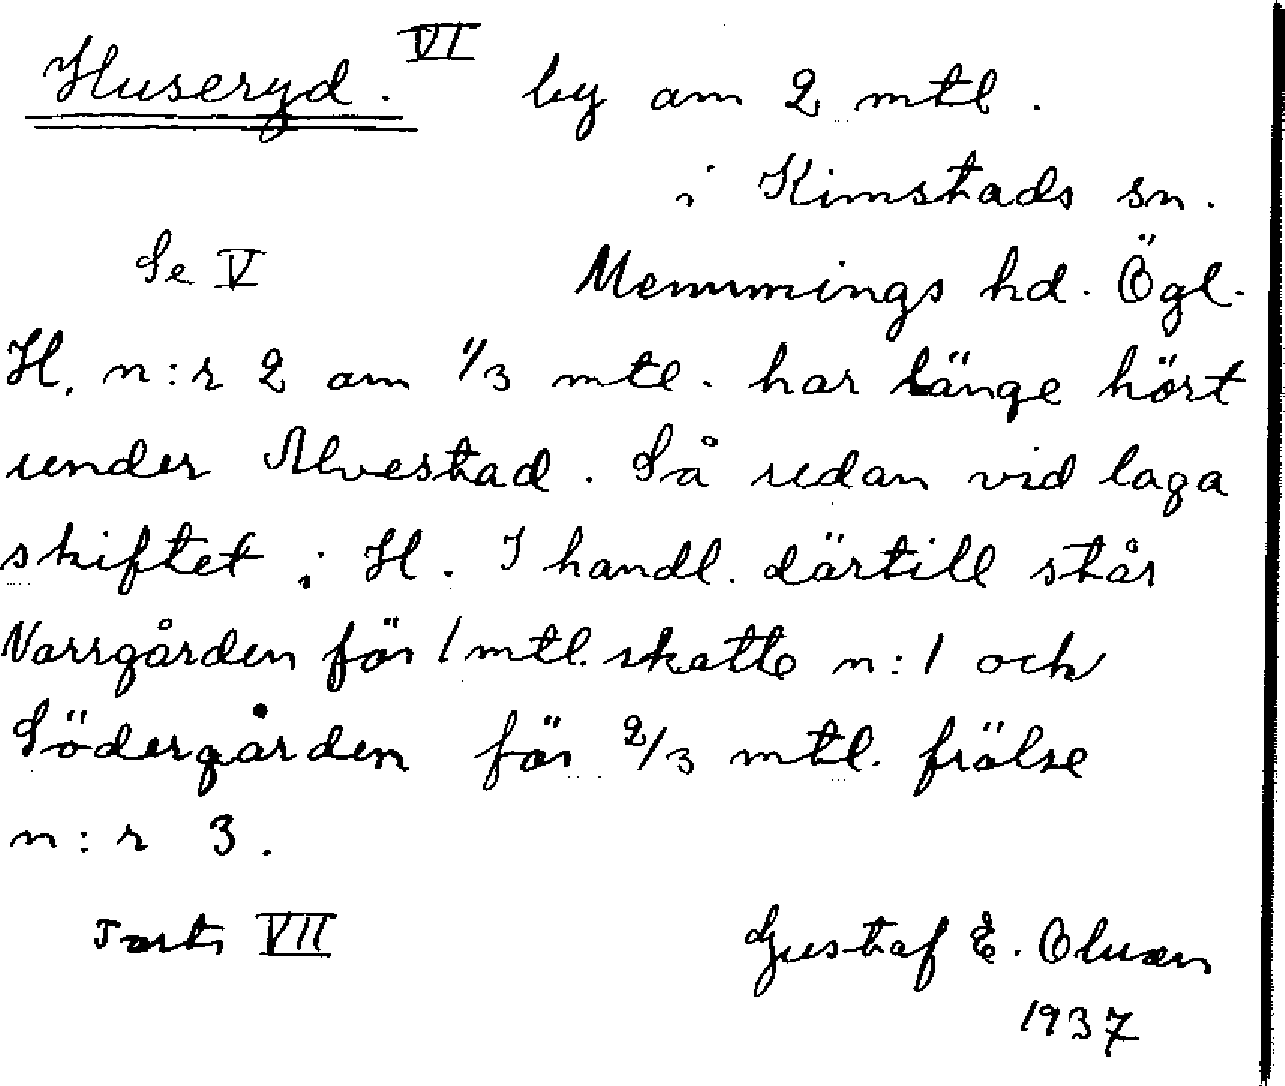 Huseryd. VI by om 2 mtl.
i Kimstads sn.
Se V Memmings hd. Ögl.
H. n:r 2 om 1/3 mtl. har länge hört
under Alvestad. Så redan vid laga
skiftet i H. I handl. därtill står
Norrgården för 1 mtl. skatte n:1 och
Södergården för 2/3 mtl. frälse
n:r 3.
Forts VII Gustaf E.
1937